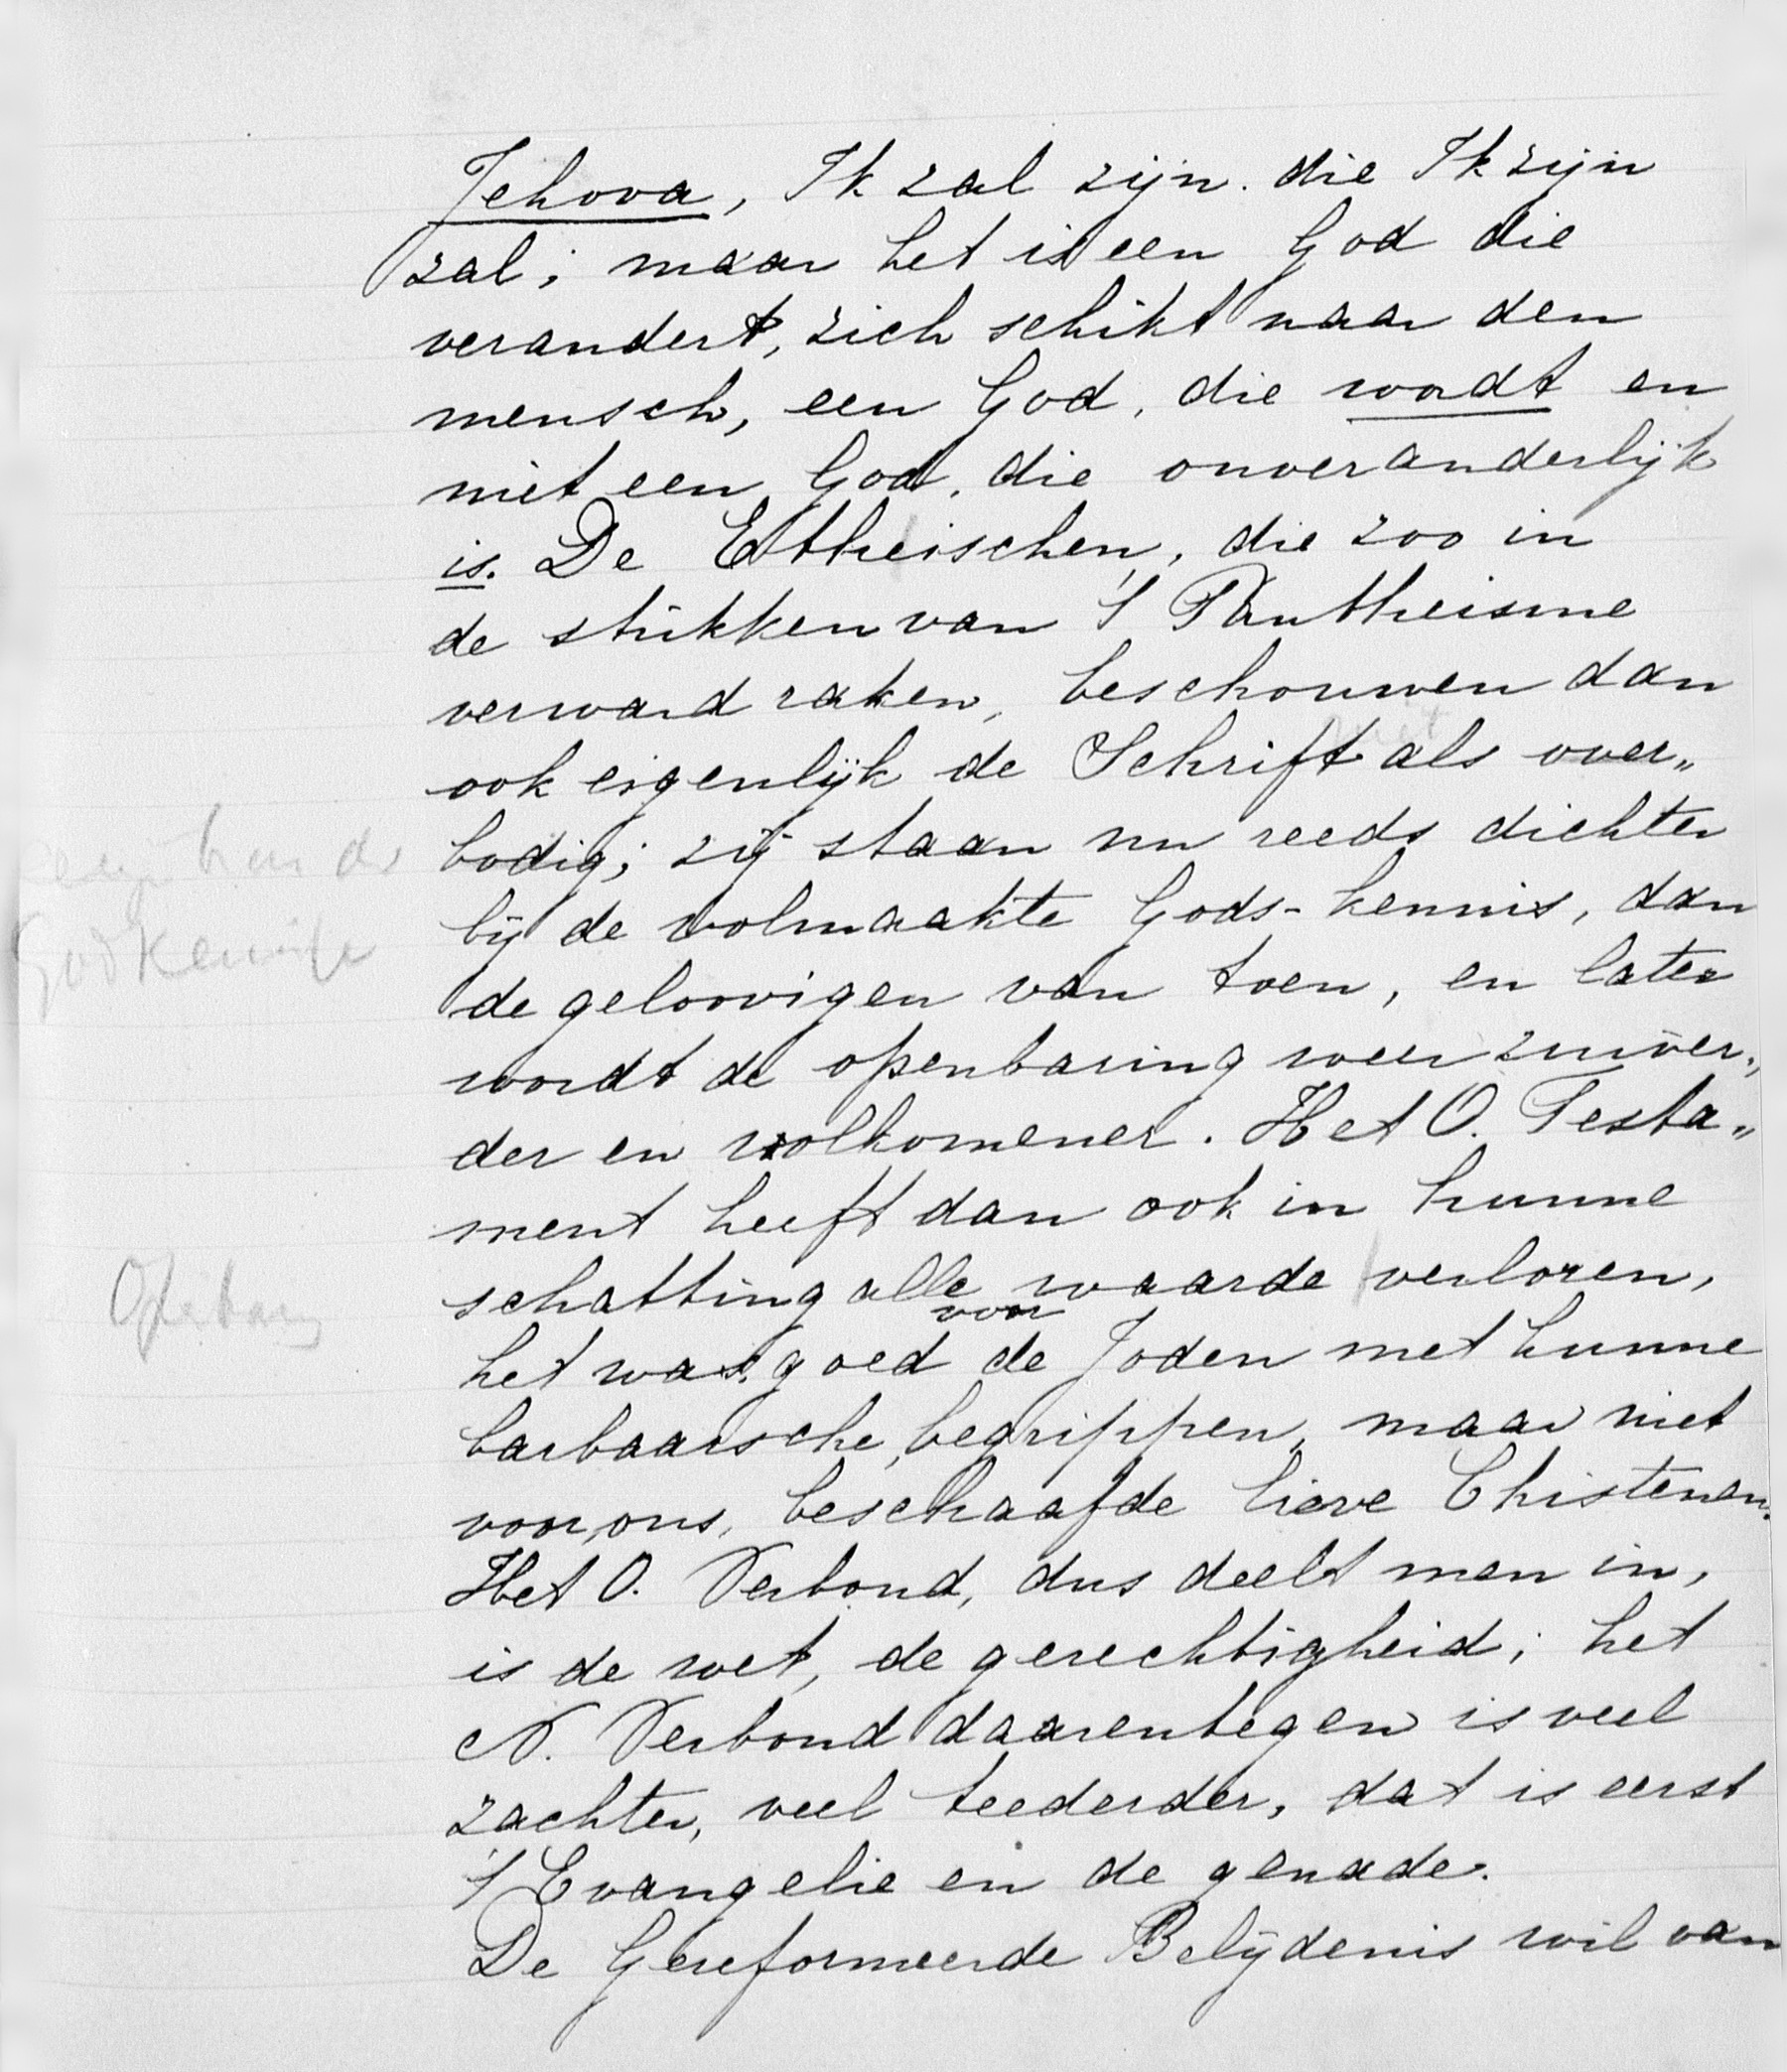 Jehova, Ik zal zijn. die Ik zijn
zal; maar het is een God die
verandert, zich schikt naar den
mensch, een God, die wordt en
niet een God, die onveranderlijk
is. De Ethischen, die zoo in
de strikken van 't Pantheisme
verward raken, beschouwen dan
niet
ook eigenlijk de Schrift als over„
bodig; zij staan nu reeds dichter
bij de volmaakte Gods-kennis, dan
Godkennis
de geloovigen van toen, en later
wordt de openbaring weer zuiver„
der en volkomener. Het O. Testa„
ment heeft dan ook in hunne
schatting alle waarde verloren,
Openbaring
voor
het was goed de Joden met hunne
barbaarsche begrippen, maar niet
voor ons, beschaafde lieve Christenen.
Het O. Verbond, dus deelt men in,
is de wet, de gerechtigheid; het
N. Verbond daarentegen is veel
zachter, veel teederder, dat is eerst
't Evangelie en de genade.
De Gereformeerde Belijdenis wil van